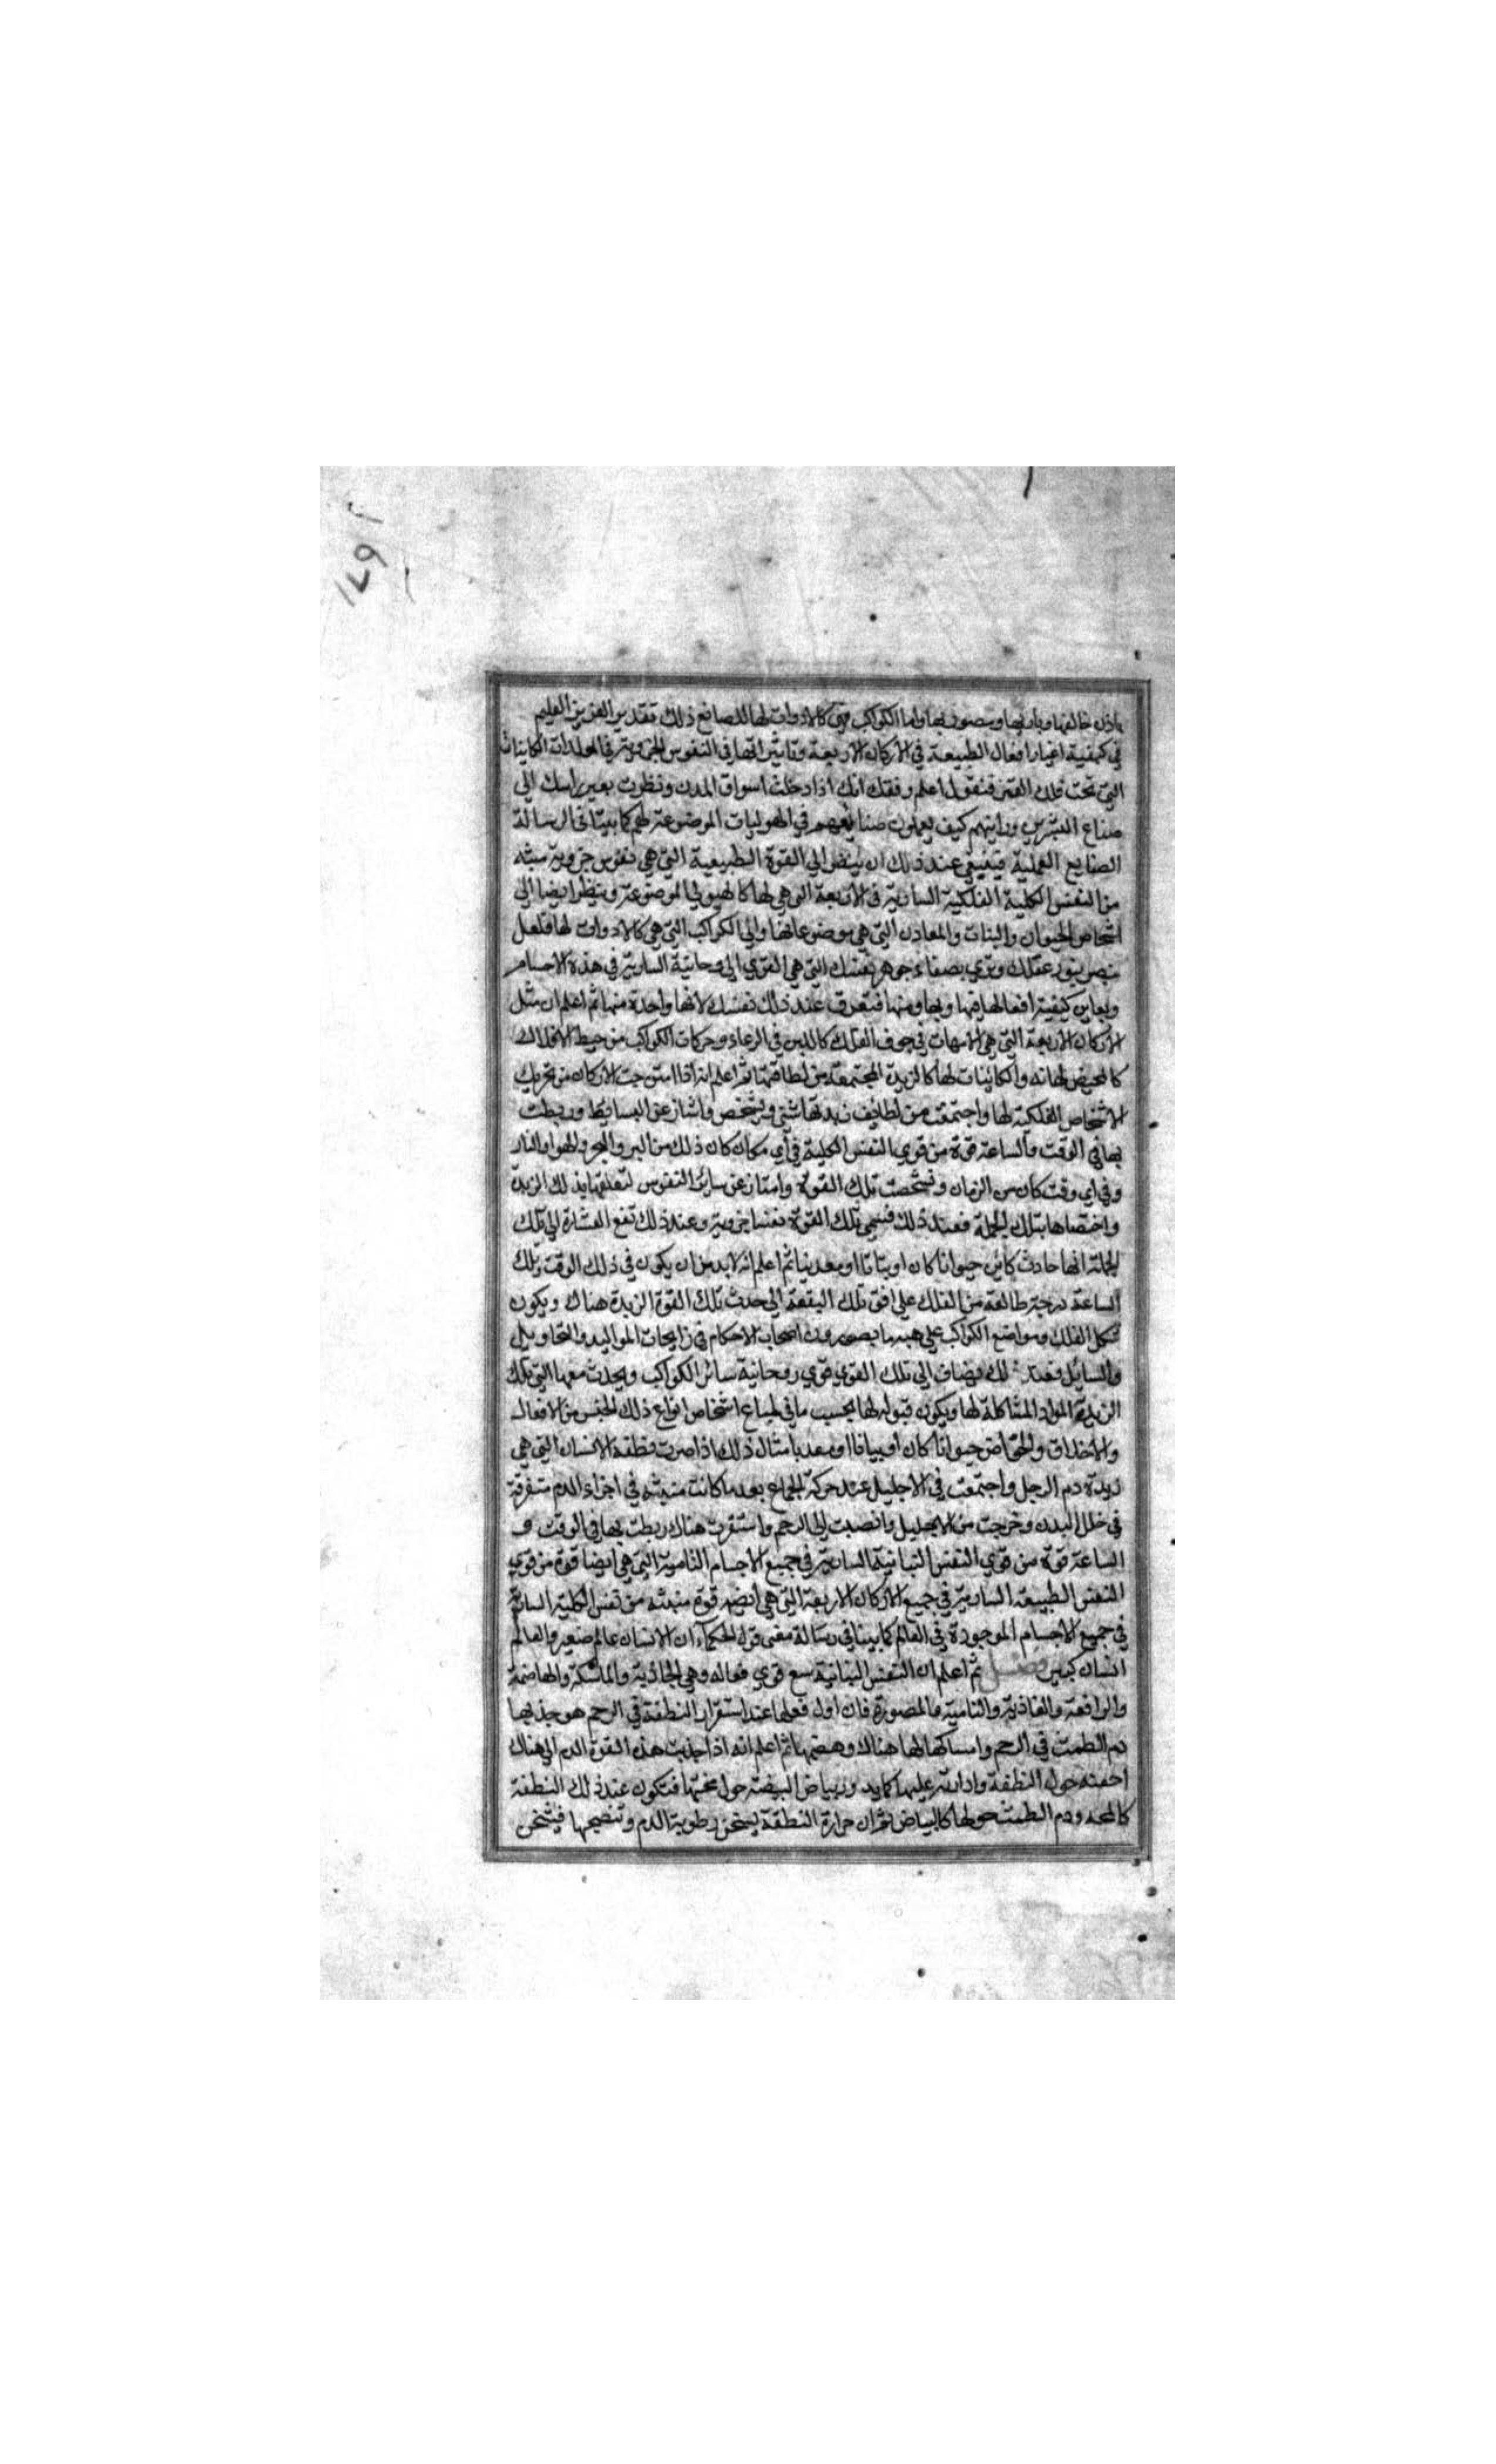 باذن خالقها وباريها ومصورها واما الكواكب فهي كالادوات لها للصانع ذلك تقدير العزيز العليم
في كيفية اعتبار افعال الطبيعة في الاركان الاربعة وتاثيراتها في النفوس الجزوية في المولدات الكاينات
التي تحت فلك القمر فنقول اعلم وفقك انك اذا دخلت اسواق المدن ونظرت بعين راسك الى
صناع البشرين ورايتهم كيف يعملون صنايعهم في الهوليات الموضوعة لهم كما بينا في الرسالة
الصنايع العملية فينبغي عند ذلك ان ينظر الي القوة الطبيعية التي هي نفوس جزوية منبثه
من النفس الكلية الفلكية السارية في الاربعة التي هي لها كالهيولي الموضوعة وينظر ايضا الى
اشخاص الحيوان والنبات والمعادن التي هي موضوعاتها والي الكواكب التي هي كالادوات لها فلعل
تبصر بنور عقلك وتري بصفاء جوهر نفسك التي هي القوي الروحانية السارية في هذه الاجسام
ويعاين كيفية افعالها فيها وبها ومنها فتعرف عند ذلك نفسك لانها واحدة منها ثم اعلم ان مثل
الاركان الاربعة التي هي الامهات في جوف الفلك كاللبن في الوعاء وحركات الكواكب من حيط الافلاك
كالمخيض لها والكاينات لها كالزبدة المجتمعة من لطافتها ثم اعلم انه اذا امتزجت الاركان من تحريك
الاشخاص الفلكية لها واجتمعت من لطايف زبدتها شي وتشخص وامتاز عن البسايط وربطت
بها في الوقت والساعة قوة من قوي النفس الكلية في أي مكان كان ذلك من البر والبحر والهوا والنار
وفي اي وقت كان من الزمان وتشخصت تلك القوة وامتاز عن سائر النفوس لتعلقها بذلك الزبدة
واختصاها بتلك الجملة فعند ذلك فسمي تلك القوة نفسا جزوية وعند ذلك تقع العشارة الي تلك
الجملة انها حادث كاين حيوانا كان او نباتا او معدنيا ثم اعلم انه لابد من ان يكون في ذلك الوقت وتلك
الساعة درجة طالعة من الفلك علي افق تلك البقعة الي حدث تلك القوة الزبدة هناك ويكون
شكل الفلك ومواضع الكواكب علي هيه ما يصورون اصحاب الاحكام في زايجات المواليد والتحاويل
والمسايل فعند ذلك يضاف الى تلك القوي قوي روحانية سائر الكواكب ويجذب معها التي تلك
الزبدة المواد المشاكلة لها ويكون قبوله لها بحسب ما في طباع اشخاص انواع ذلك الجنس من الافعال
والاخلاق والخواص حيوانا كان او نباتا او معدنا مثال ذلك اذا صرت نطفة الانسان التي هي
زبدة دم الرجل واجتمعت في الاحليل عند حركة الجماع بعدما كانت منبثه في اجزاء الدم متفرقة
في خلل البدن وخرجت من الاحليل وانصبت الى الرحم واستقرت هناك ربطت بها في الوقت و
الساعة قوة من قوي النفس النباتية السارية في جميع الاجسام النامية التي هي ايضا قوة من قوي
النفس الطبيعة السارية في جميع الاركان الاربعة التي هي ايضه قوة منبثه من نفس الكلية السارية
في جميع الاجسام الموجودة في العالم كما بينا في رسالة معنى قول الحكماء ان الانسان عالم صغير والعالم
انسان كبير فصل ثم اعلم ان النفس النباتية سبع قوي فعاله وهي الجاذبة والماسكة والهاضمة
والدافعة والغاذية والنامية والمصورة فان اول فعلها عند استقرار النطفة في الرحم هو جذبها
دم الطمث في الرحم وامساكها لها هناك وهضمها ثم اعلم انه اذا جذبت هذه القوة الدم الى هناك
احفته حول النطفة وادارته عليها كما يدور بياض البيضة حول محتها فتكون عند ذلك النطفة
كالمحه ودم الطمث حولها كالبياض ثم ان حرارة النطفة يسخن رطوبة الدم وتنضجها فيشخن